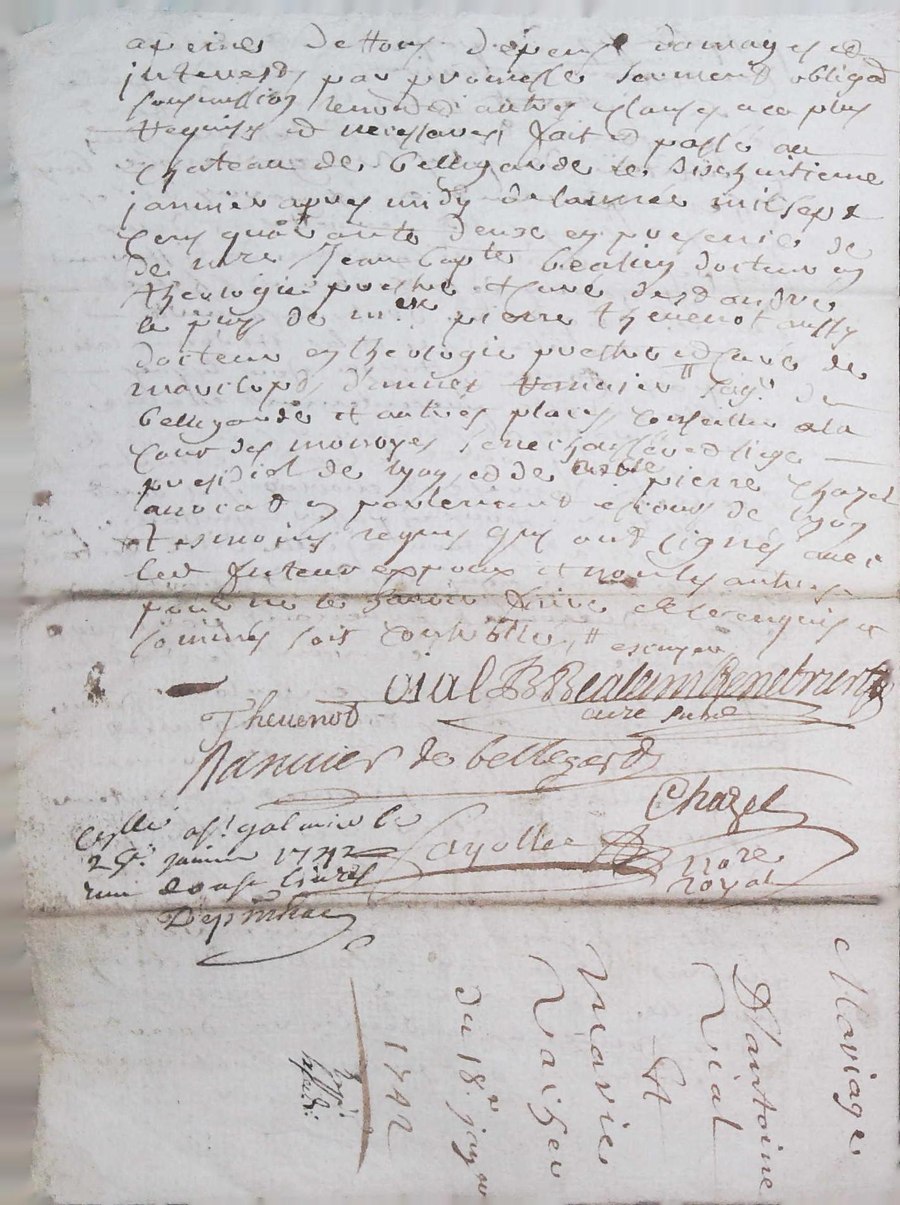 a peines de tous depens domages et
interests par promesse serment obligaõn
soumission renonõn autres clauses a ce plus
requises et necessaires, fait et passé au
chateau de bellegarde le dixhuitieme
janvier apres midy de lannée mil sept
cens quarante deux en presence de
de mre Jean bapte bealem docteur en
theologie prestre et curé de st andre
le puy de mre pierre thevenot aussy
docteur en theologie prestre et curé de
ranvier seigr de
bellegarde et autres places conseiller a la
cour des monoyes senechaussée et siege
presidial de lyon et de pierre chazel
avocat en parlement et cours de lyon
tesmoins requis qui ont signés avec
led futeur expoux et non les autres
pour ne le savoir faire de ce enquis et
sommés soit controllé
vial JB Bealem Benetruit
Thevenot curé susd
Ranvier de bellegarde
Chazel
Cayollee nore
royal
Cllé a st galmier le
janvier 1742
reçu douze livres
Mariage
D'antoine
Vial
Et
Marie
du 18e janv
1742